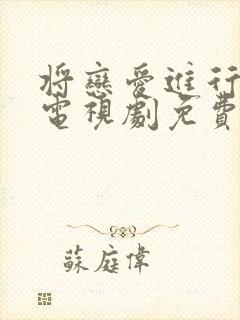 將戀愛進行
電視劇免費
蘇庭偉